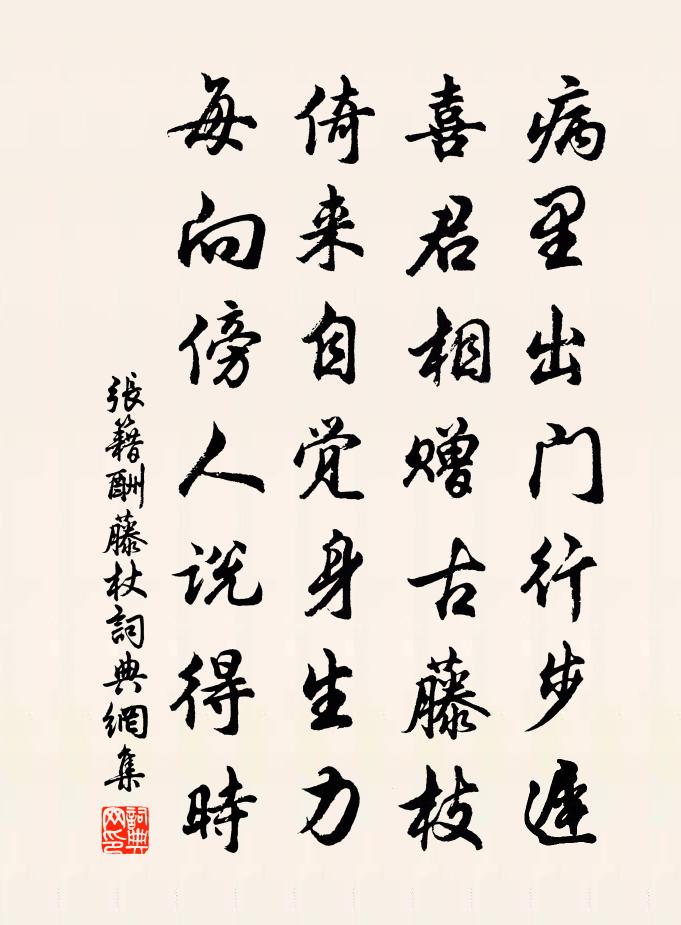 病里出门行步遲
喜君相赠古藤枝
倚来自觉身生力
每向傍人说得時
張籍酬藤杖詞典網集
詞典
网印